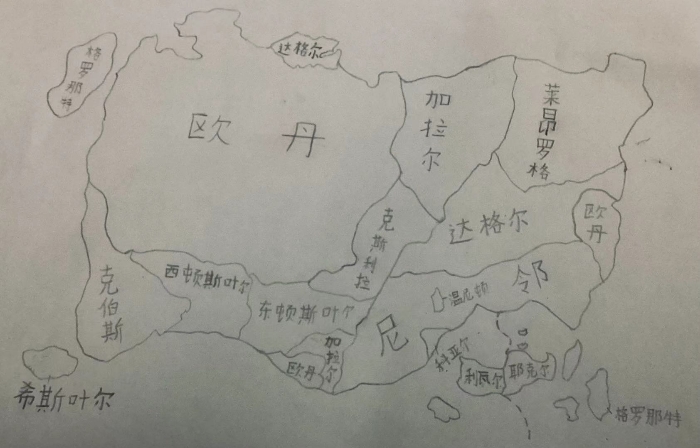 达格尔
格罗那特
欧丹
加拉尔
莱昂罗格
克斯利拉
达格尔
欧丹
克伯斯
西顿斯叶尔
东顿斯叶尔
温尼顿
尼邻
加拉尔
欧丹
科亚尔
利瓦尔
耶克尔
希斯叶尔
格罗那特